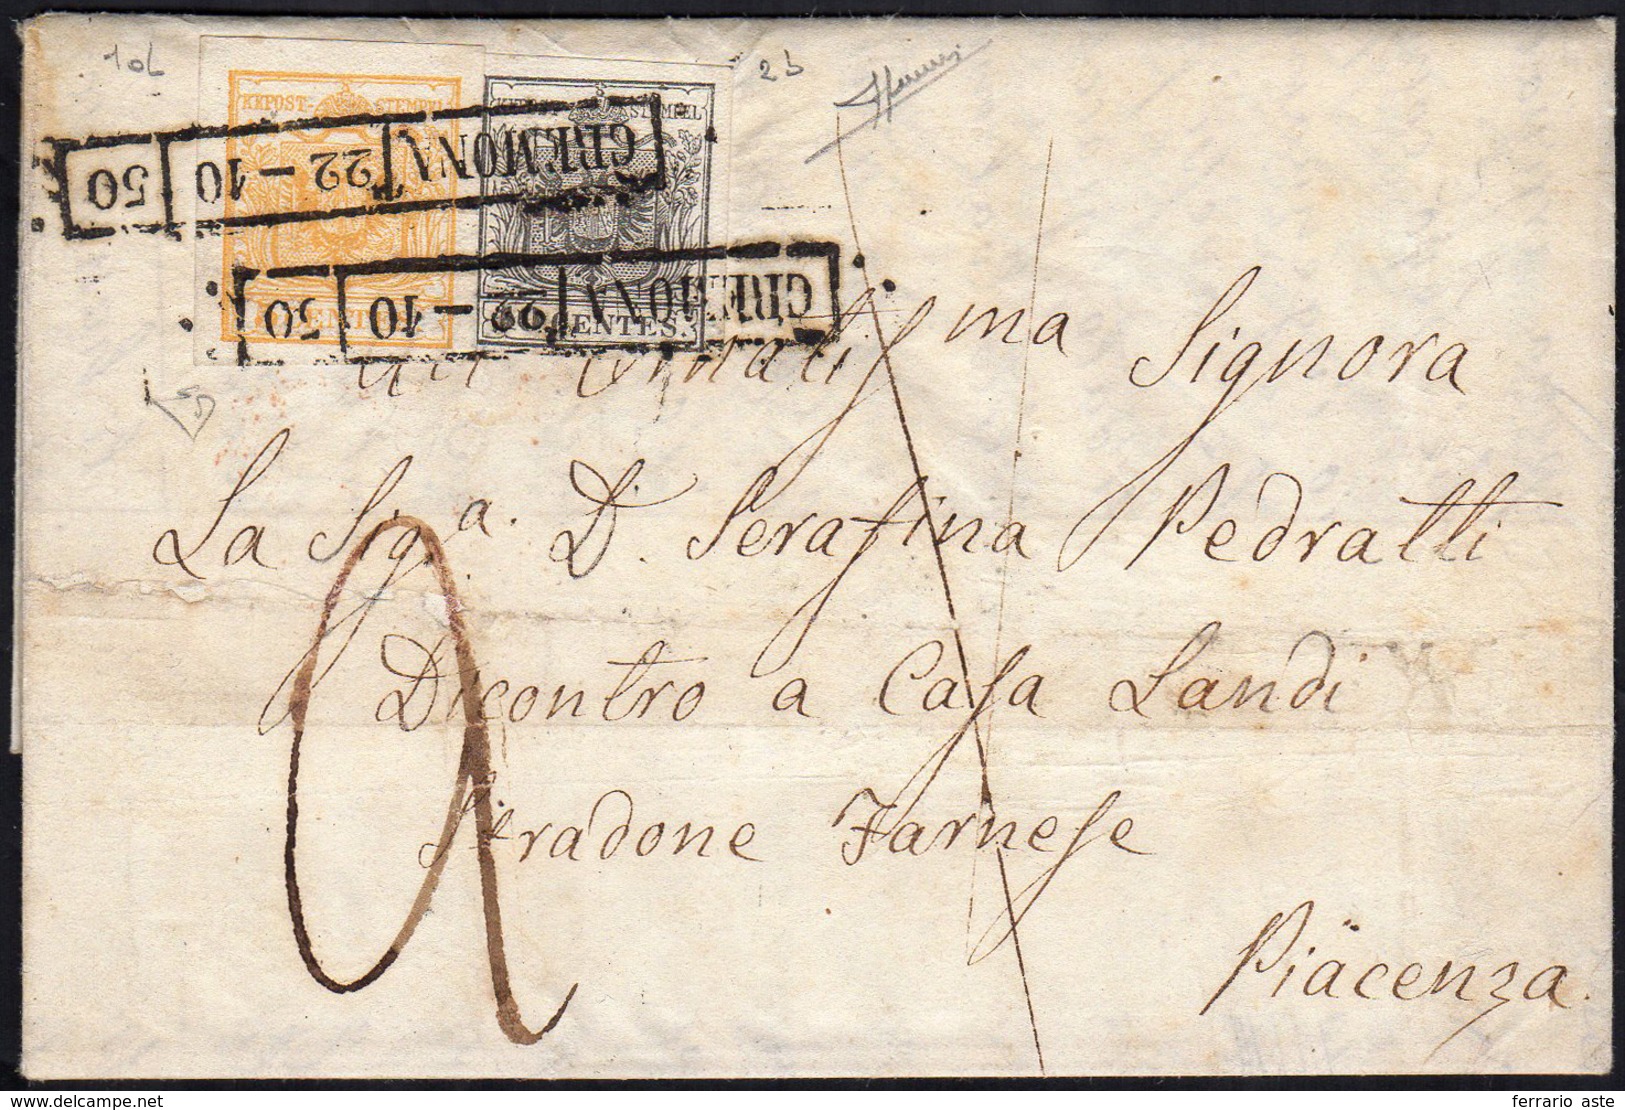 10L
2b
KKPOST-STEMPEL
KKPOST-STEMPEL
CREMONA 22-10 50
CREMONA 22-10 50
CENTES.
CENTES.
ma Signora
La Sig.a D. Serafina Pedratti
Dicontro a Casa Landi
Stradone Farnese
Piäcenza.
ferrario aste